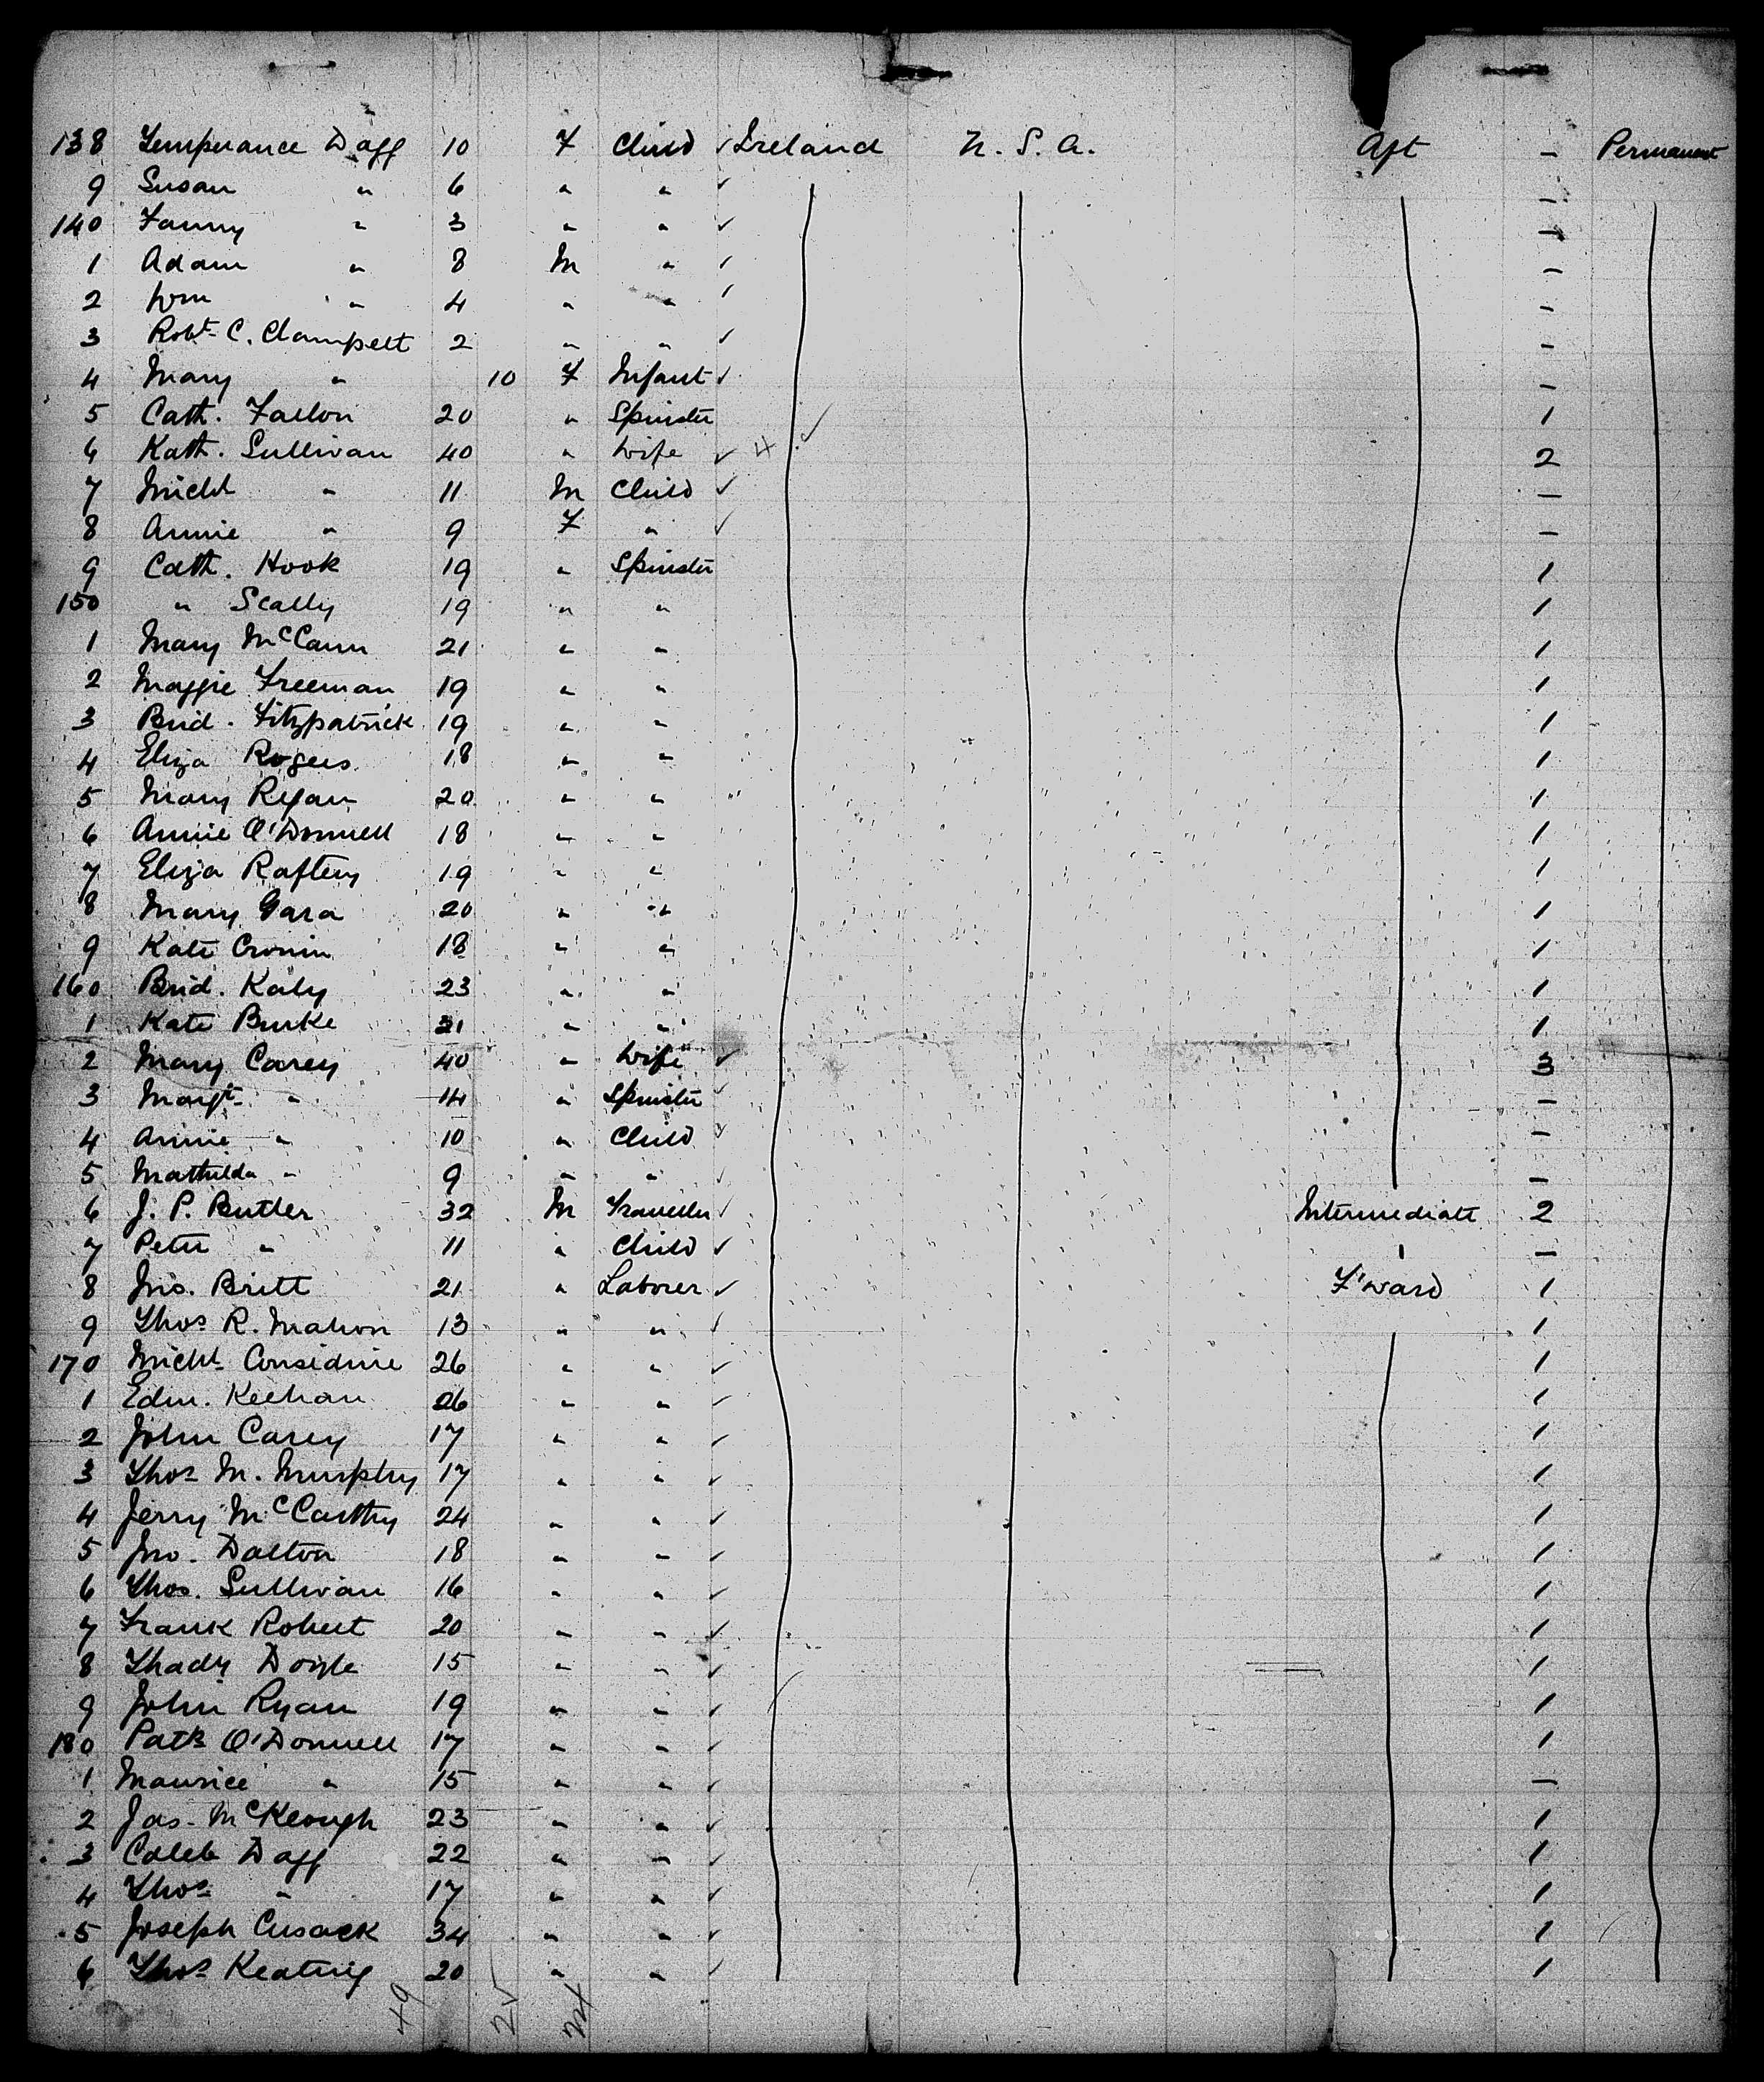 138 Temperance Dagg 10 F Child ✓ Ireland U. S. A. Aft - Permanent
9 Susan " 6 " " ✓ -
140 Fanny " 3 " " ✓ -
1 Adam " 8 M " ✓ -
2 Wm " 4 " " ✓ -
3 Robt C. Clampett 2 " " ✓ -
4 Mary " 10 F Infant ✓ -
5 Cath. Fallon 20 " Spinster ✓ 1
6 Kath. Sullivan 40 " Wife ✓ 4 2
7 Michl " 11 M Child ✓ -
8 Annie " 9 F " ✓ -
9 Cath. Hook 19 " Spinster 1
150 " Scally 19 " " 1
1 Mary McCann 21 " " 1
2 Maggie Freeman 19 " " 1
3 Brid. Fitzpatrick 19 " " 1
4 Eliza Rogers 18 " " 1
5 Mary Ryan 20 " " 1
6 Annie O'Donnell 18 " " 1
7 Eliza Raftery 19 " " 1
8 Mary Gara 20 " " 1
9 Kate Cronin 18 " " 1
160 Brid. Kaly 23 " " 1
1 Kate Burke 21 " " 1
2 Mary Carey 40 " Wife ✓ 3
3 Margt " 14 " Spinster ✓ -
4 Annie " 10 " Child ✓ -
5 Mathilda " 9 " " ✓ -
6 J. P. Butler 32 M Traveller ✓ Intermediate 2
7 Peter " 11 " Child ✓ " -
8 Jno. Britt 21 " Laborer ✓ F'ward 1
9 Thos R. Mahon 13 " " ✓ 1
170 Michl Considine 26 " " ✓ 1
1 Edm. Keehan 26 " " ✓ 1
2 John Carey 17 " " ✓ 1
3 Thos M. Murphy 17 " " ✓ 1
4 Jerry McCarthy 24 " " ✓ 1
5 Jno. Dalton 18 " " ✓ 1
6 Thos. Sullivan 16 " " ✓ 1
7 Frank Robert 20 " " ✓ 1
8 Thady Doyle 15 " " ✓ 1
9 John Ryan 19 " " ✓ 1
180 Patk O'Donnell 17 " " ✓ 1
1 Maurice " 15 " " ✓ -
2 Jas. McKeough 23 " " ✓ 1
3 Caleb Dagg 22 " " ✓ 1
4 Thos " 17 " " ✓ 1
5 Joseph Cusack 34 " " ✓ 1
6 Thos Keating 20 " " ✓ 1
49 25 24